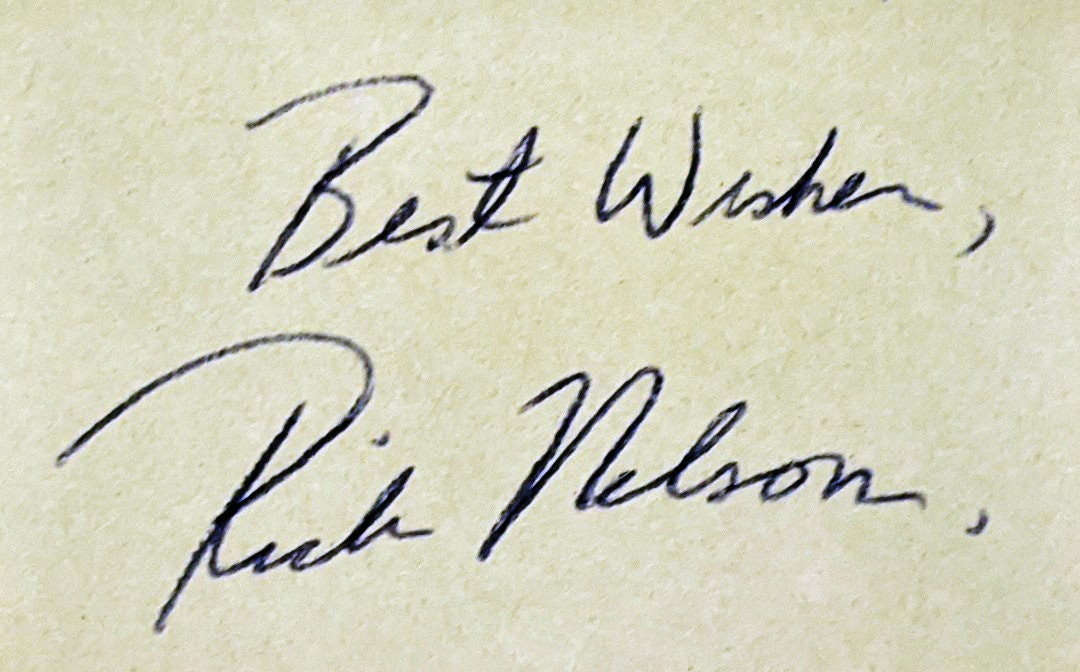 Best Wishes,
Rick Nelson,